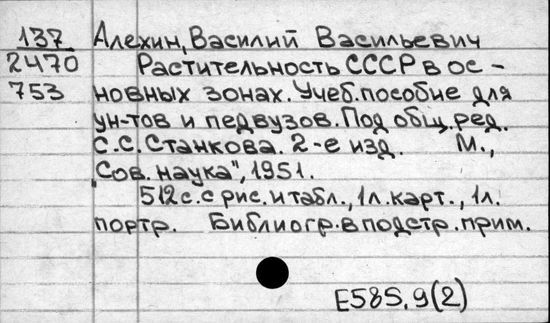 137 Алехин, Василий Васильевич
2470 Растительность СССР в ос-
753 новных зонах. Учеб. пособие для
ун-тов и педвузов. Под общ. ред.
С.С. Станкова. 2-е изд. М.,
"Сов. наука", 1951.
512 с. с рис. и табл., 1 л. карт., 1 л.
портр. Библиогр. в подстр. прим.
Е585.9(2)